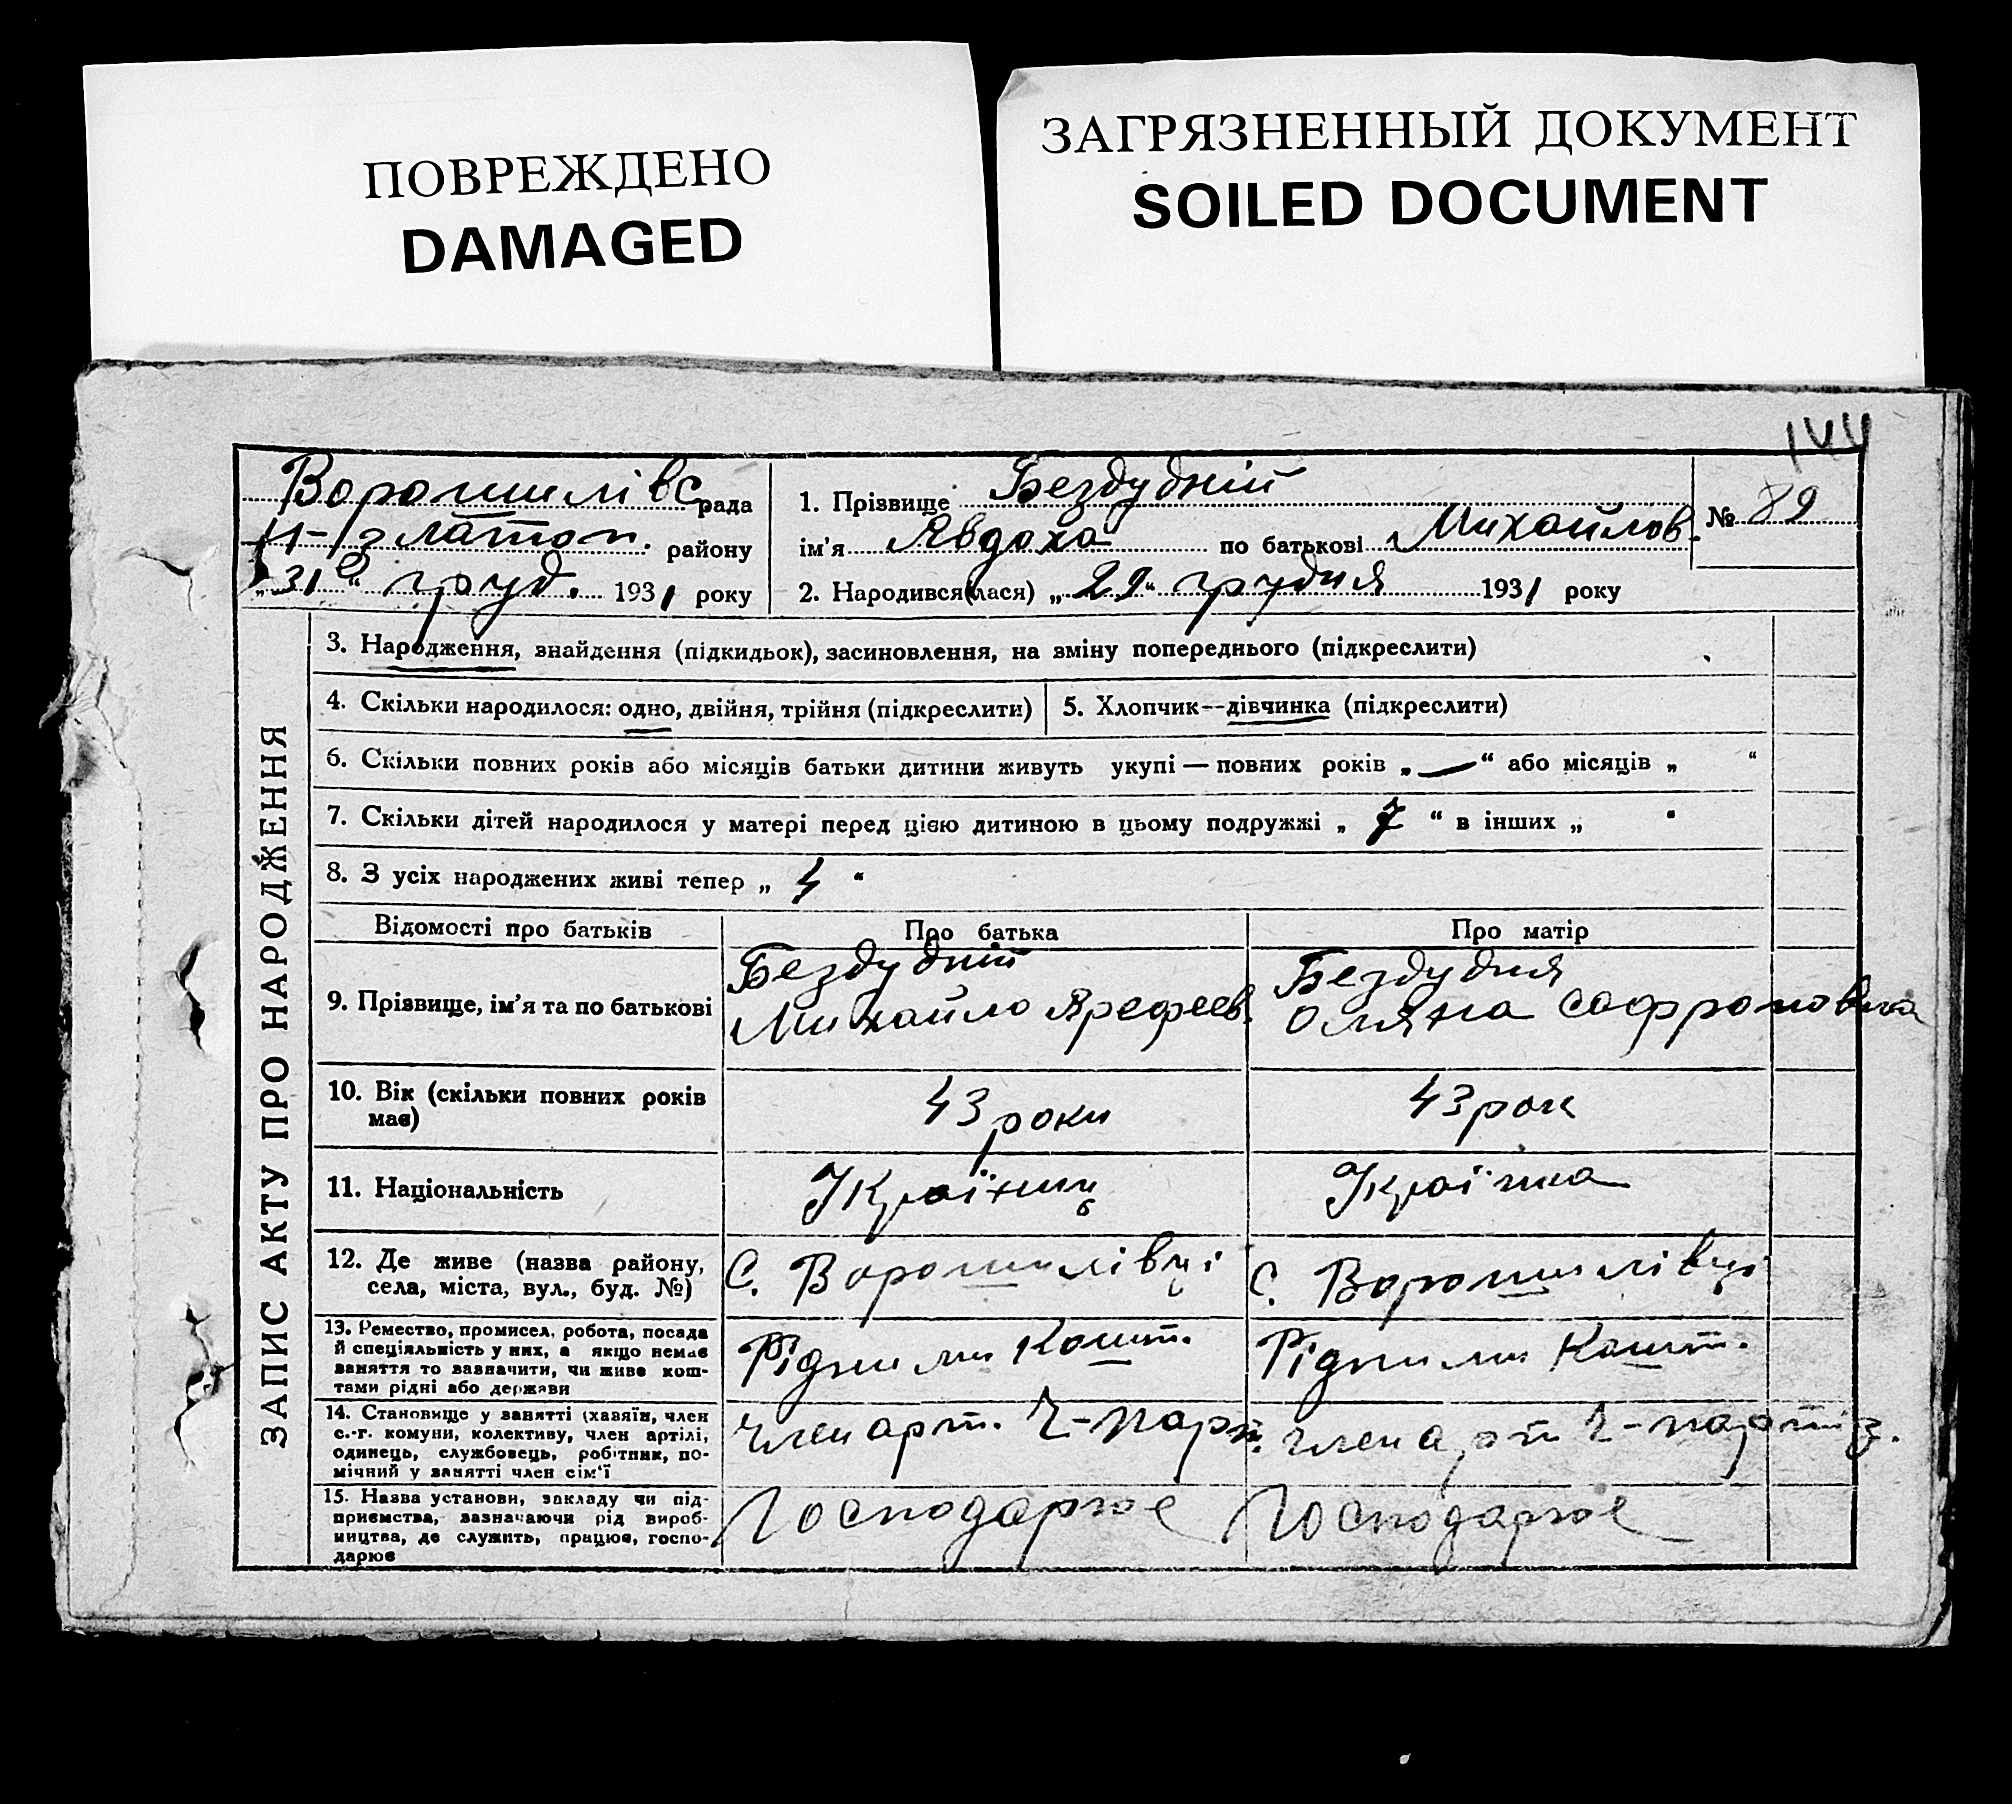 ПОВРЕЖДЕНО
DAMAGED
ЗАГРЯЗНЕННЫЙ ДОКУМЕНТ
SOILED DOCUMENT
144
Ворошилівс рада
Н-Златоп. району
„31“ груд. 1931 року
1. Прізвище Бездудній
ім'я Явдоха по батькові Михайлов.
2. Народився(лася) „29“ грудня 1931 року
№ 89
ЗАПИС АКТУ ПРО НАРОДЖЕННЯ
3. Народження, знайдення (підкидьок), засиновлення, на зміну попереднього (підкреслити)
4. Скільки народилося: одно, двійня, трійня (підкреслити)
5. Хлопчик--дівчинка (підкреслити)
6. Скільки повних років або місяців батьки дитини живуть укупі — повних років „—“ або місяців „ “
7. Скільки дітей народилося у матері перед цією дитиною в цьому подружжі „ 7 “ в інших „ “
8. З усіх народжених живі тепер „ 4 “
Відомості про батьків
Про батька
Про матір
9. Прізвище, ім'я та по батькові
Бездудній
Михайло Арефеев.
Бездудня
Оляна Софроновна
10. Вік (скільки повних років
має)
43 роки
43 рок
11. Національність
Українць
Українка
12. Де живе (назва району,
села, міста, вул., буд. №)
С. Ворошилівці
С. Ворошилівці
13. Ремество, промисел, робота, посада
й спеціяльність у них, а якщо немає
заняття то зазначити, чи живе кош-
тами рідні або держави
Рідними Кошт.
Рідними Кошт.
14. Становище у занятті (хазяїн, член
с.-г. комуни, колективу, член артілі,
одинець, службовець, робітник, по-
мічний у занятті член сім'ї
Член арт. Ч-парт.
член арт Ч-партіз.
15. Назва установи, закладу чи під-
приємства, зазначаючи рід вироб-
ництва, де служить, працює, госпо-
дарює
Господарює
Господарює